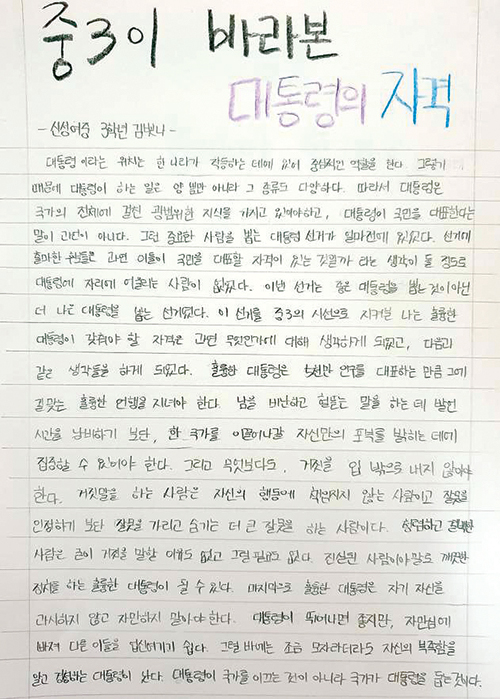 중3이 바라본
대통령의 자격
- 신성여중 3학년 김빛나 -
대통령이라는 위치는 한 나라가 작동하는 데에 있어 중심적인 역할을 한다. 그렇기
때문에 대통령이 하는 일은 양 뿐만 아니라 그 종류도 다양하다. 따라서 대통령은
국가의 전체에 걸친 광범위한 지식을 가지고 있어야하고, 대통령이 국민을 대표한다는
말이 과언이 아니다. 그런 중요한 사람을 뽑는 대통령 선거가 얼마전에 있었다. 선거에
출마한 분들은 과연 이들이 국민을 대표할 자격이 있는 것일까 라는 생각이 들 정도로
대통령에 자리에 어울리는 사람이 없었다. 이번 선거는 좋은 대통령을 뽑는 것이 아닌
더 나은 대통령을 뽑는 선거였다. 이 선거를 중3의 시선으로 지켜본 나는 훌륭한
대통령이 갖춰야 할 자격은 과연 무엇인가에 대해 생각하게 되었고, 다음과
같은 생각들을 하게 되었다. 훌륭한 대통령은 5천만 인구를 대표하는 만큼 그에
걸맞는 훌륭한 언행을 지녀야 한다. 남을 비난하고 헐뜯는 말을 하는 데 발언
시간을 낭비하기 보단, 한 국가를 이끌어나갈 자신만의 포부를 밝히는 데에
집중할 수 있어야 한다. 그리고 무엇보다도, 거짓을 입 밖으로 내지 않아야
한다. 거짓말을 하는 사람은 자신의 행동에 책임지지 않는 사람이고 잘못을
인정하기 보단 잘못을 가리고 숨기는 더 큰 잘못을 하는 사람이다. 청렴하고 결백한
사람은 굳이 거짓을 말할 이유도 없고 그럴 필요도 없다. 진실된 사람이야말로 깨끗한
정치를 하는 훌륭한 대통령이 될 수 있다. 마지막으로 훌륭한 대통령은 자기 자신을
과시하지 않고 자만하지 말아야 한다. 대통령이 뛰어나면 좋지만, 자만심에
빠져 다른 이들을 업신여기기 쉽다. 그럴 바에는 조금 모자라더라도 자신의 부족함을
알고 감동하는 대통령이 낫다. 대통령이 국가를 이끄는 것이 아니라 국가가 대통령을 돕는 것이다.